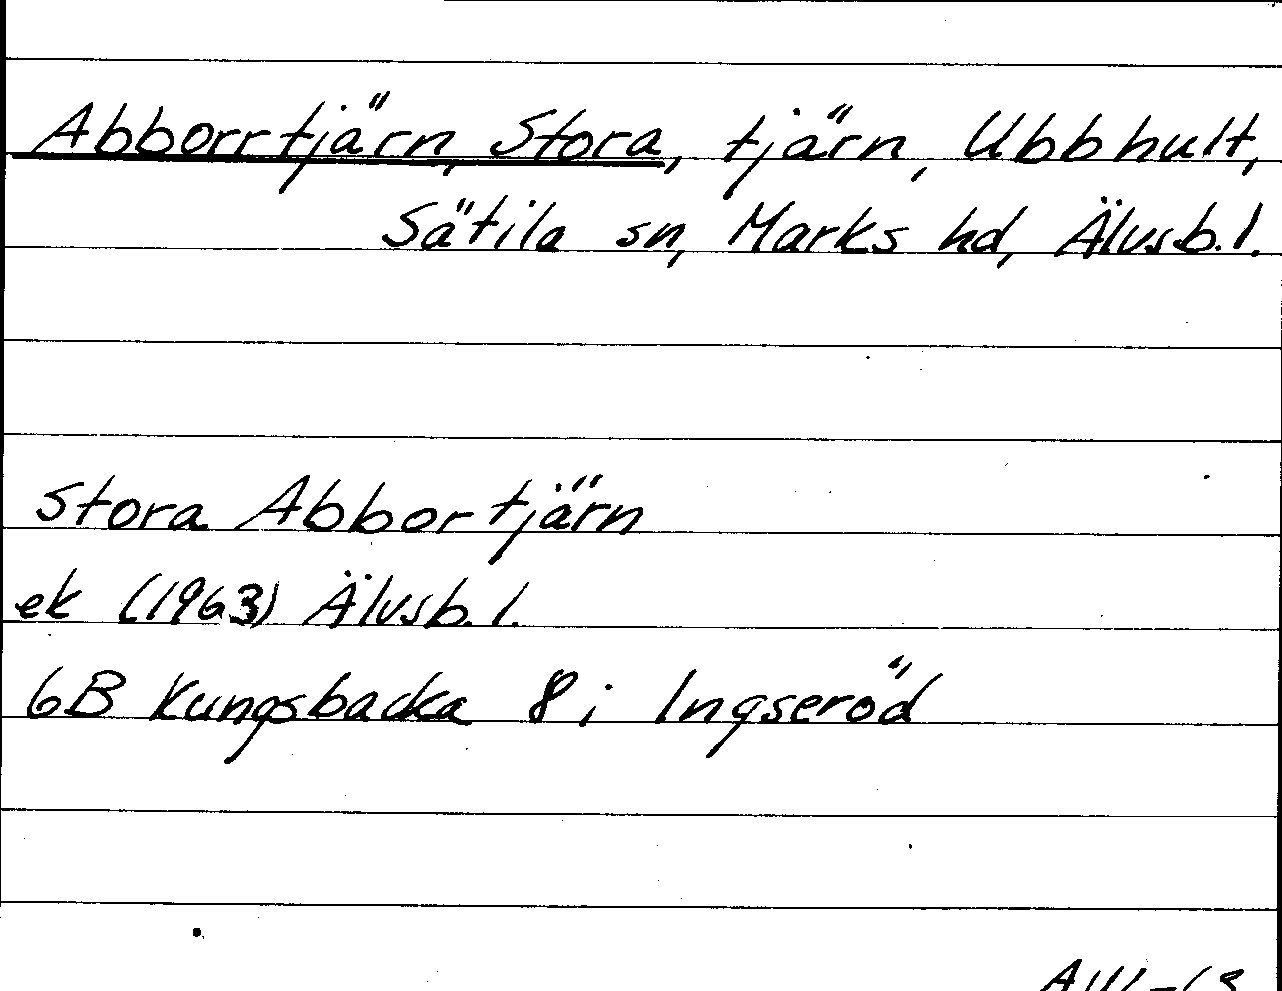 Abborrtjärn, Stora, tjärn, Ubbhult,
Sätila sn, Marks hd, Älvsb.l.
Stora Abbortjärn
ek (1963) Älvsb.l.
6B Kungsbacka 8i Ingseröd